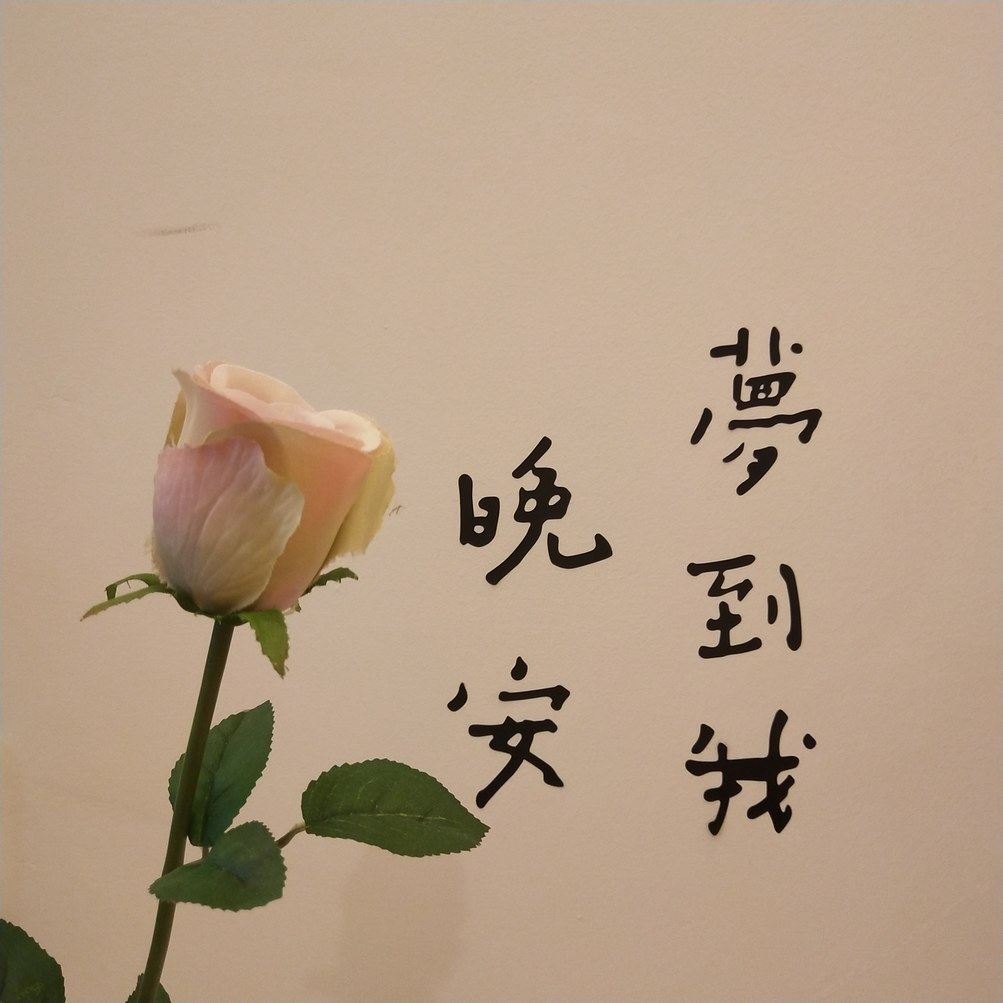 夢到我
晚安